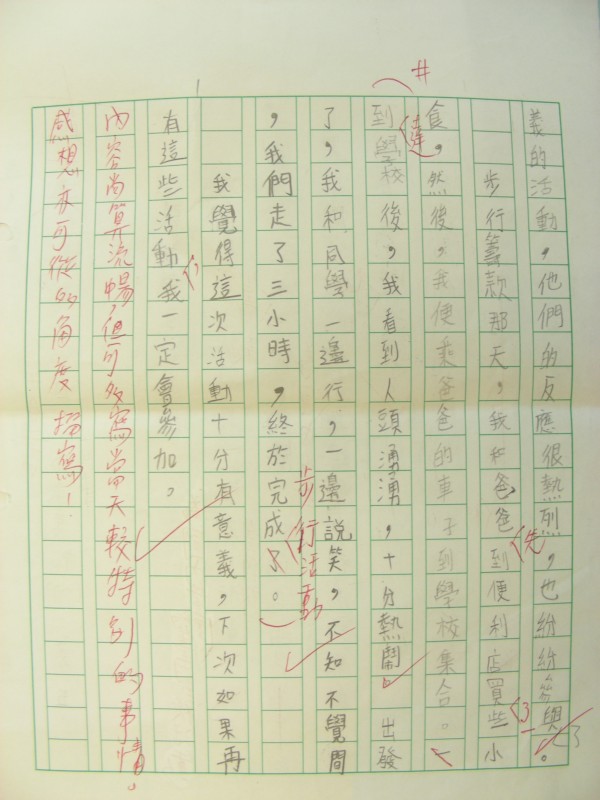 義的活動,他們的反應很熱烈,也紛紛參與。
了
步行籌款那天,我和爸爸到便利店買些小
先
食,然後,我便乘爸爸的車子到學校集合。
到學校後,我看到人頭湧湧,十分熱鬧。出發
達
了,我和同學一邊行,一邊說笑,不知不覺間
,我們走了三小時,終於完成了。
步行活動
我覺得這次活動十分有意義,下次如果再
有這些活動我一定會參加。
內容尚算流暢,但可多寫當天較特別的事情。
感想亦可從多角度描寫!